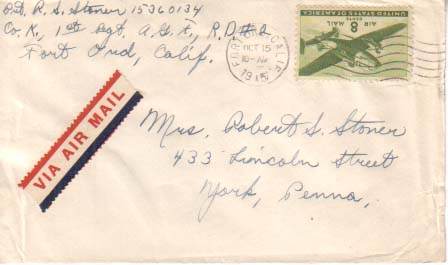 Pvt. R. S. Stoner 15360134
Co. K., 1st Rgt. A.G.F., R.D. #2
Fort Ord, Calif.
OCT 15
10-AM
CALIF
UNITED STATES OF AMERICA
8 CENTS
AIR MAIL
VIA AIR MAIL
Mrs. Robert S. Stoner
433 Lincoln Street
York, Penna.